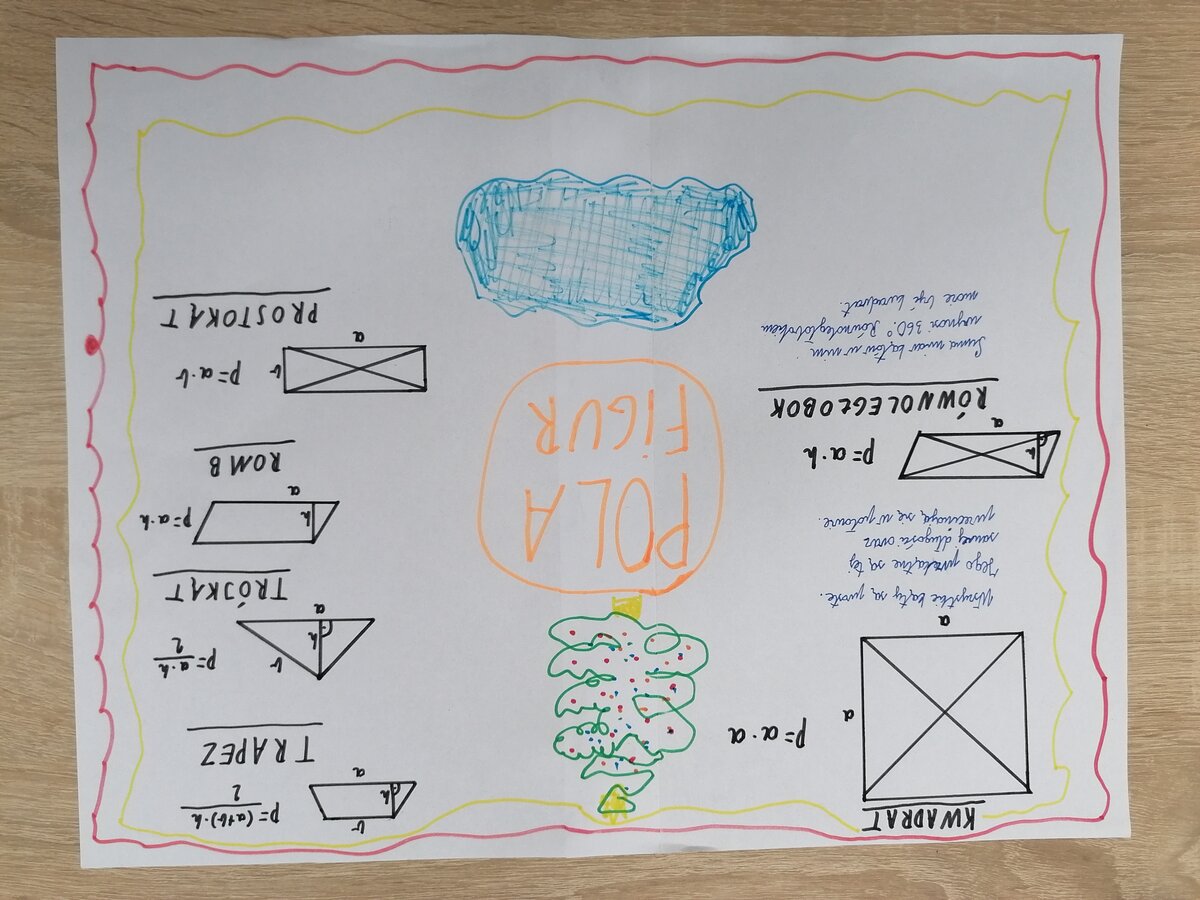 KWADRAT
a
P = a · a
a
Wszystkie kąty są proste.
Jego przekątne są tej
samej długości oraz
przecinają się w połowie.
h
P = a · h
a
RÓWNOLEGŁOBOK
Suma miar kątów w nim
wynosi 360°. Równoległobokiem
może być kwadrat.
POLA
FIGUR
b
h
P = (a+b) · h
2
a
TRAPEZ
h
b
P = a · h
2
a
TRÓJKĄT
h
P = a · h
a
ROMB
b
P = a · b
a
PROSTOKĄT